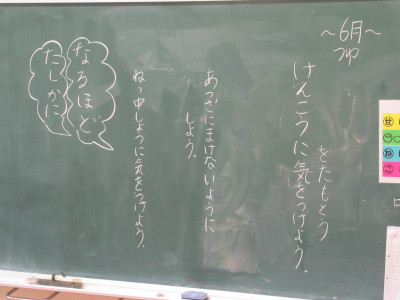 ～6月～
つゆ
けんこうに気をつけよう。
をたもとう
あつさにまけないように
しよう。
ねっ中しょうに気をつけよう。
なるほど
たしかに
せ
ね
こ